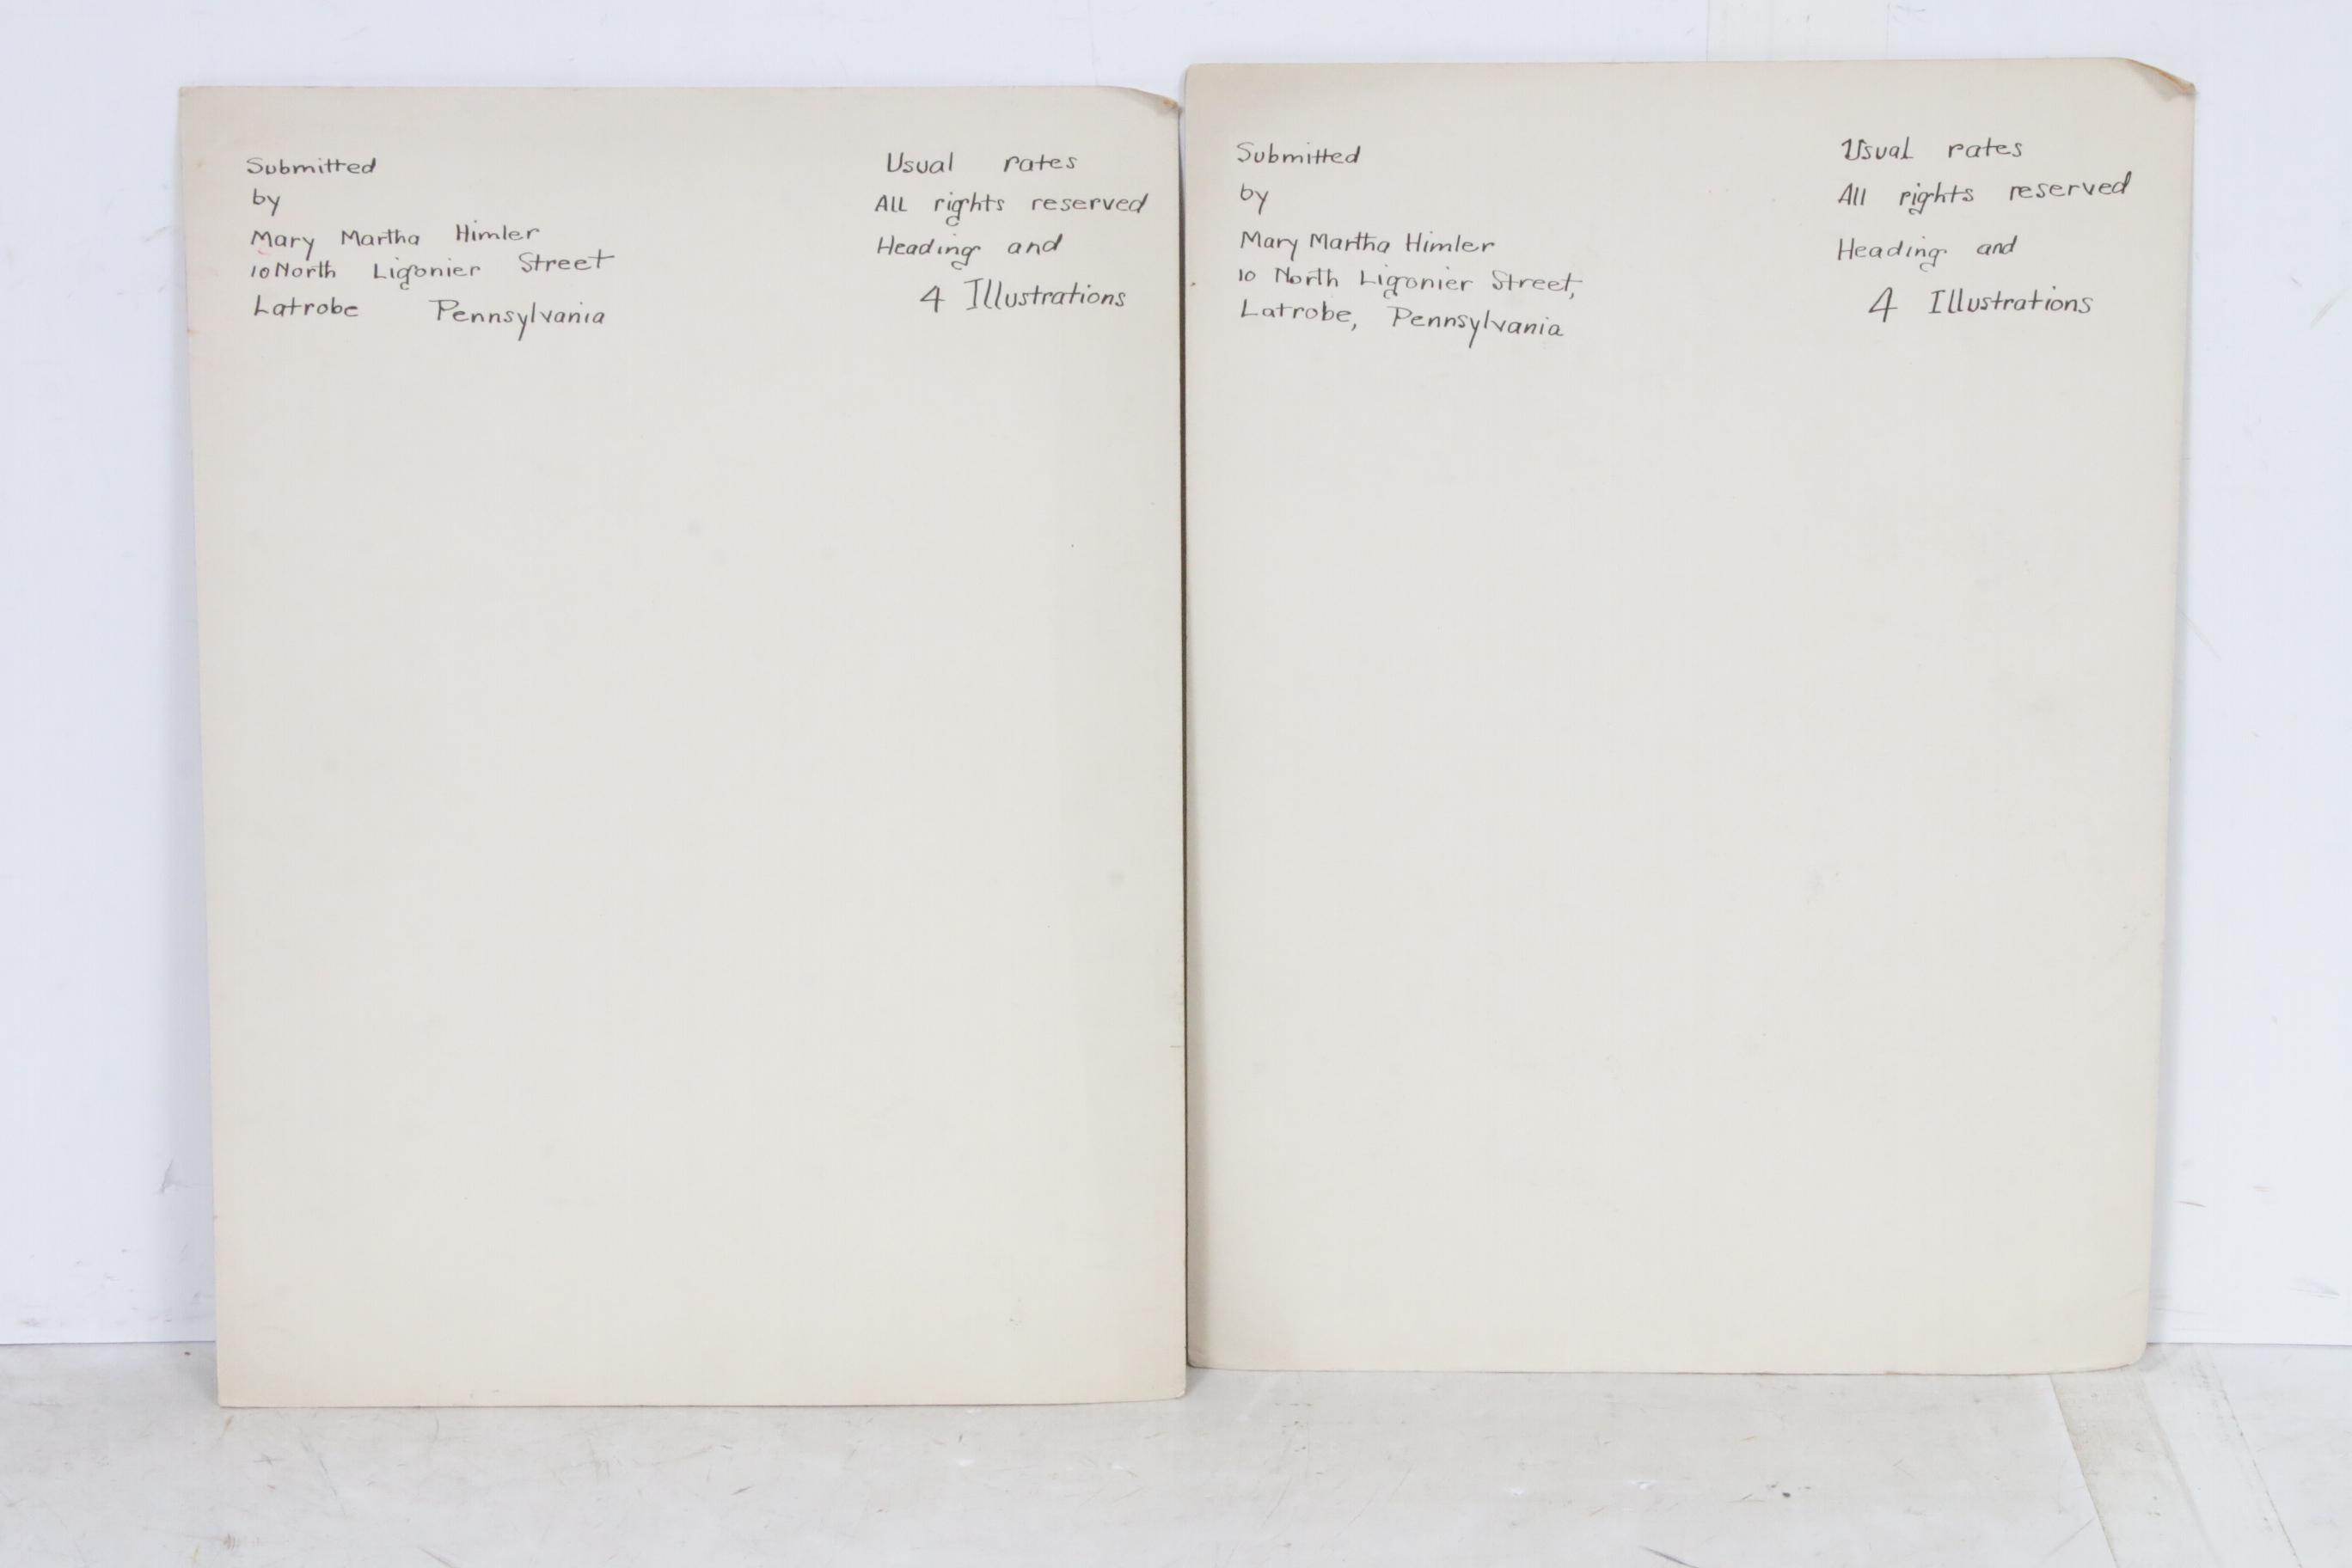 Submitted
by
Mary Martha Himler
10 North Ligonier Street
Latrobe Pennsylvania
Usual rates
All rights reserved
Heading and
4 Illustrations
Submitted
by
Mary Martha Himler
10 North Ligonier Street,
Latrobe, Pennsylvania
Usual rates
All rights reserved
Heading and
4 Illustrations